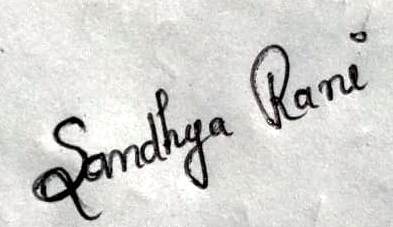 Sandhya Rani